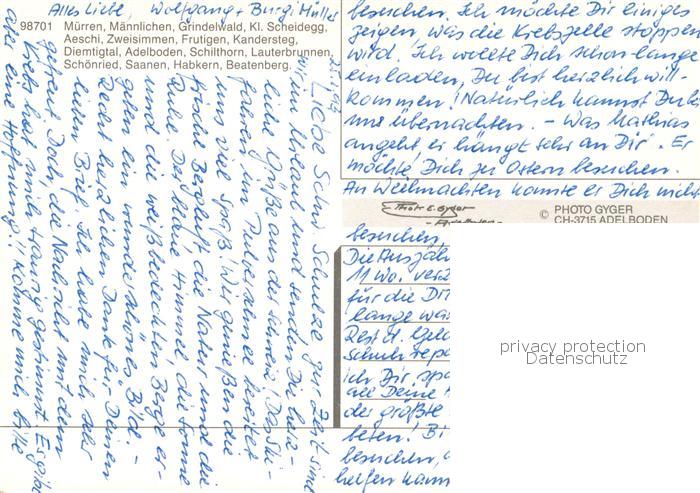 Alles Liebe, Wolfgang + Burgi Müller
98701 Mürren, Männlichen, Grindelwald, Kl. Scheidegg,
Aeschi, Zweisimmen, Frutigen, Kandersteg,
Diemtigtal, Adelboden, Schilthorn, Lauterbrunnen,
Schönried, Saanen, Habkern, Beatenberg.
Liebe Schw. Schulze zur Zeit sind
wir im Urlaub und senden Dir herz
liche Grüße aus der Schweiz! Das Ski-
fahren im Pulverschnee bereitet
uns viel Spaß! Wir genießen die
frische Bergluft, die Natur und die
Ruhe. Der blaue Himmel die Sonne
und die weißbedeckten Berge er-
geben ein wunderschönes Bild. -
Recht herzlichen Dank für Deinen
lieben Brief. Ich habe mich sehr
gefreut. Doch, die Nachricht mit dem
Krebs hat mich traurig gestimmt. Es gibt
aber eine Hoffnung!! Komme uns bitte
besuchen. Ich möchte Dir einiges
zeigen, was die Krebszelle stoppen
wird. Ich wollte Dich schon lange
einladen, Du bist herzlich will-
kommen! Natürlich kannst Du bei
uns übernachten. - Was Mathias
angeht, er hängt sehr an Dir. Er
möchte Dich zu Ostern besuchen.
An Weihnachten konnte er Dich nicht
© PHOTO GYGER
CH-3715 ADELBODEN
besuchen,
Die Auszah
11 Wo. verz
für die Dir
lange wa
Rest d. Geld
schuh repa
ich Dir, spa
all Deine
der größte
beten! Bi
besuchen,
helfen kann
privacy protection
Datenschutz